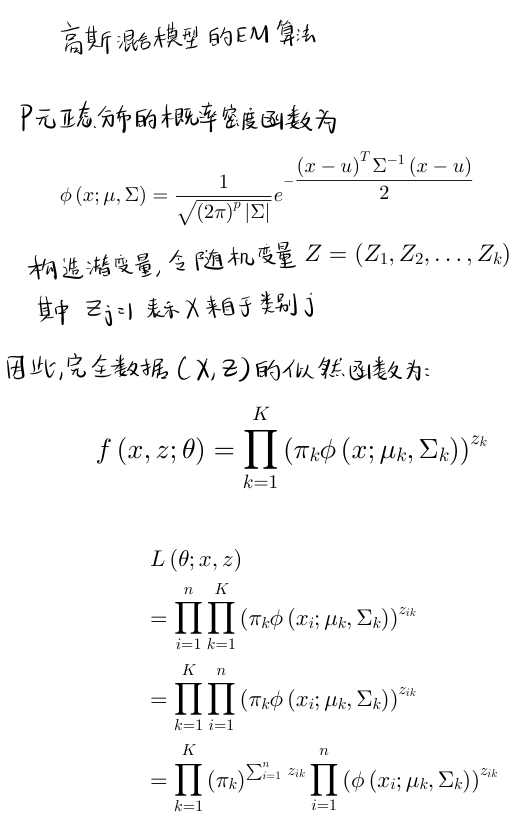 高斯混合模型的EM算法
P元正态分布的概率密度函数为
ϕ(x;μ,Σ) = \frac{1}{\sqrt{(2π)^p|Σ|}} e^{-\frac{(x-u)^T Σ^{-1}(x-u)}{2}}
构造潜变量,令随机变量 Z = (Z_1, Z_2, ..., Z_k)
其中 Zj=1 表示X来自于类别j
因此,完全数据(X,Z)的似然函数为:
f(x,z;θ) = \prod_{k=1}^{K} (π_kϕ(x;μ_k,Σ_k))^{z_k}
L(θ;x,z)
= \prod_{i=1}^{n} \prod_{k=1}^{K} (π_kϕ(x_i;μ_k,Σ_k))^{z_{ik}}
= \prod_{k=1}^{K} \prod_{i=1}^{n} (π_kϕ(x_i;μ_k,Σ_k))^{z_{ik}}
= \prod_{k=1}^{K} (π_k)^{\sum_{i=1}^{n} z_{ik}} \prod_{i=1}^{n} (ϕ(x_i;μ_k,Σ_k))^{z_{ik}}